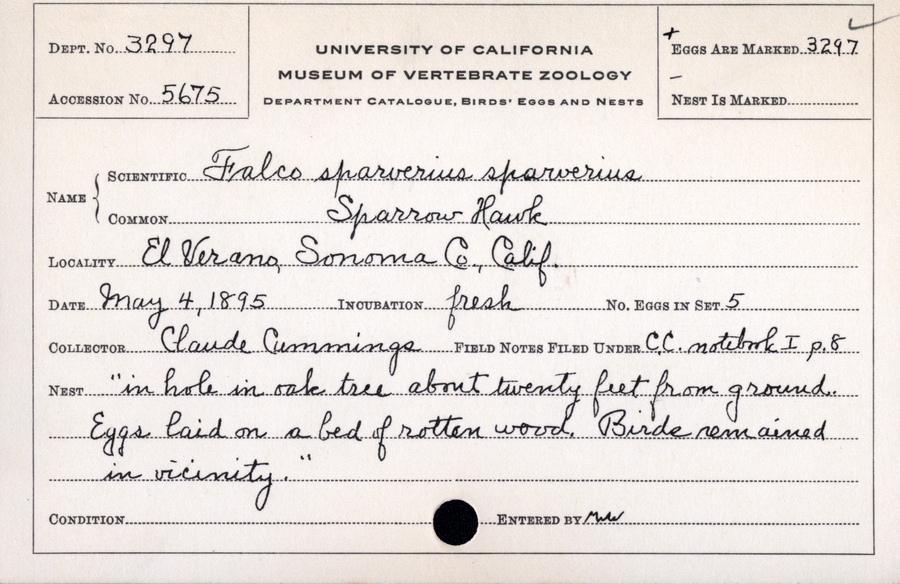 DEPT. NO. 3297
ACCESSION NO. 5675
UNIVERSITY OF CALIFORNIA
MUSEUM OF VERTEBRATE ZOOLOGY
DEPARTMENT CATALOGUE, BIRDS' EGGS AND NESTS
+
EGGS ARE MARKED 3297
–
NEST IS MARKED
NAME { SCIENTIFIC Falco sparverius sparverius
COMMON Sparrow Hawk
LOCALITY El Verano, Sonoma Co., Calif.
DATE May 4, 1895 INCUBATION fresh NO. EGGS IN SET 5
COLLECTOR Claude Cummings FIELD NOTES FILED UNDER C.C. notebook I p.8
NEST "in hole in oak tree about twenty feet from ground.
Eggs laid on a bed of rotten wood. Birds remained
in vicinity."
CONDITION ENTERED BY